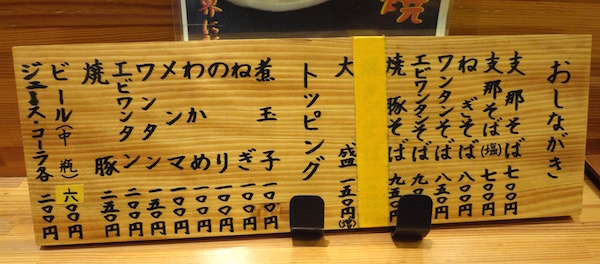 おしながき
支那そば 七〇〇円
支那そば(塩) 七〇〇円
ねぎそば 八五〇円
ワンタンそば 八五〇円
エビワンタンそば 九五〇円
焼豚そば 九五〇円
大盛 一五〇円(増)
トッピング
煮玉子 一〇〇円
ねぎ 一〇〇円
のり 一〇〇円
わかめ 一〇〇円
メンマ 一〇〇円
ワンタン 一五〇円
エビワンタン 二五〇円
焼豚 二五〇円
ビール(中瓶) 六〇〇円
ジュース・コーラ各 二〇〇円